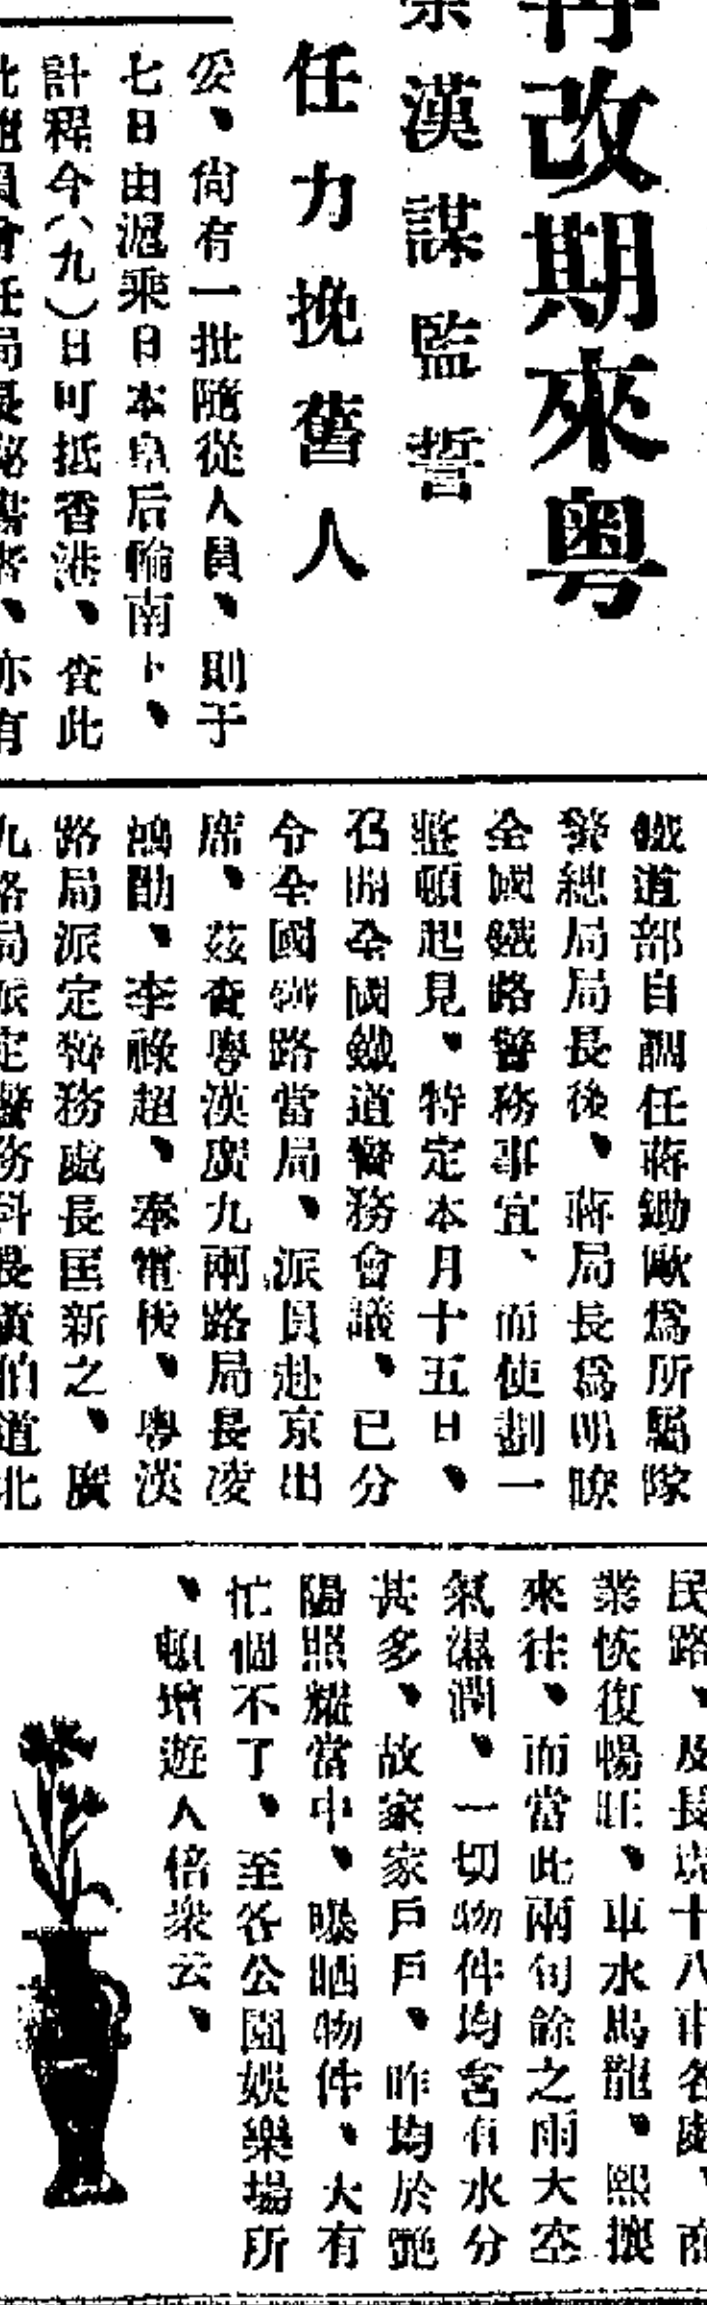 再改期來粤
漢謀監誓
任力挽舊人
妥、尙有一批隨從人員、則于
七日由滬乘日本皇后輪南下、
計程今(九)日可抵香港、查此
鐵道部自調任蔣鋤歐爲所屬隊
警總局局長後、蔣局長爲明瞭
全國鐵路警務事宜、而使劃一
整頓起見、特定本月十五日、
召開全國鐵道警務會議、已分
令全國鐵路當局、派員赴京出
席、茲查粤漢廣九兩路局長凌
鴻勛、李祿超、奉電後、粤漢
路局派定警務處長匡新之、廣
九路局派定警務科長黃伯道北
民路、及長堤十八甫各處、商
業恢復暢旺、車水馬龍、熙攘
來往、而當此兩旬餘之雨天空
氣濕潤、一切物件均含有水分
甚多、故家家戶戶、昨均於艷
陽照耀當中、曝晒物件、大有
忙個不了、至各公園娛樂場所
、頓增遊人倍衆云、